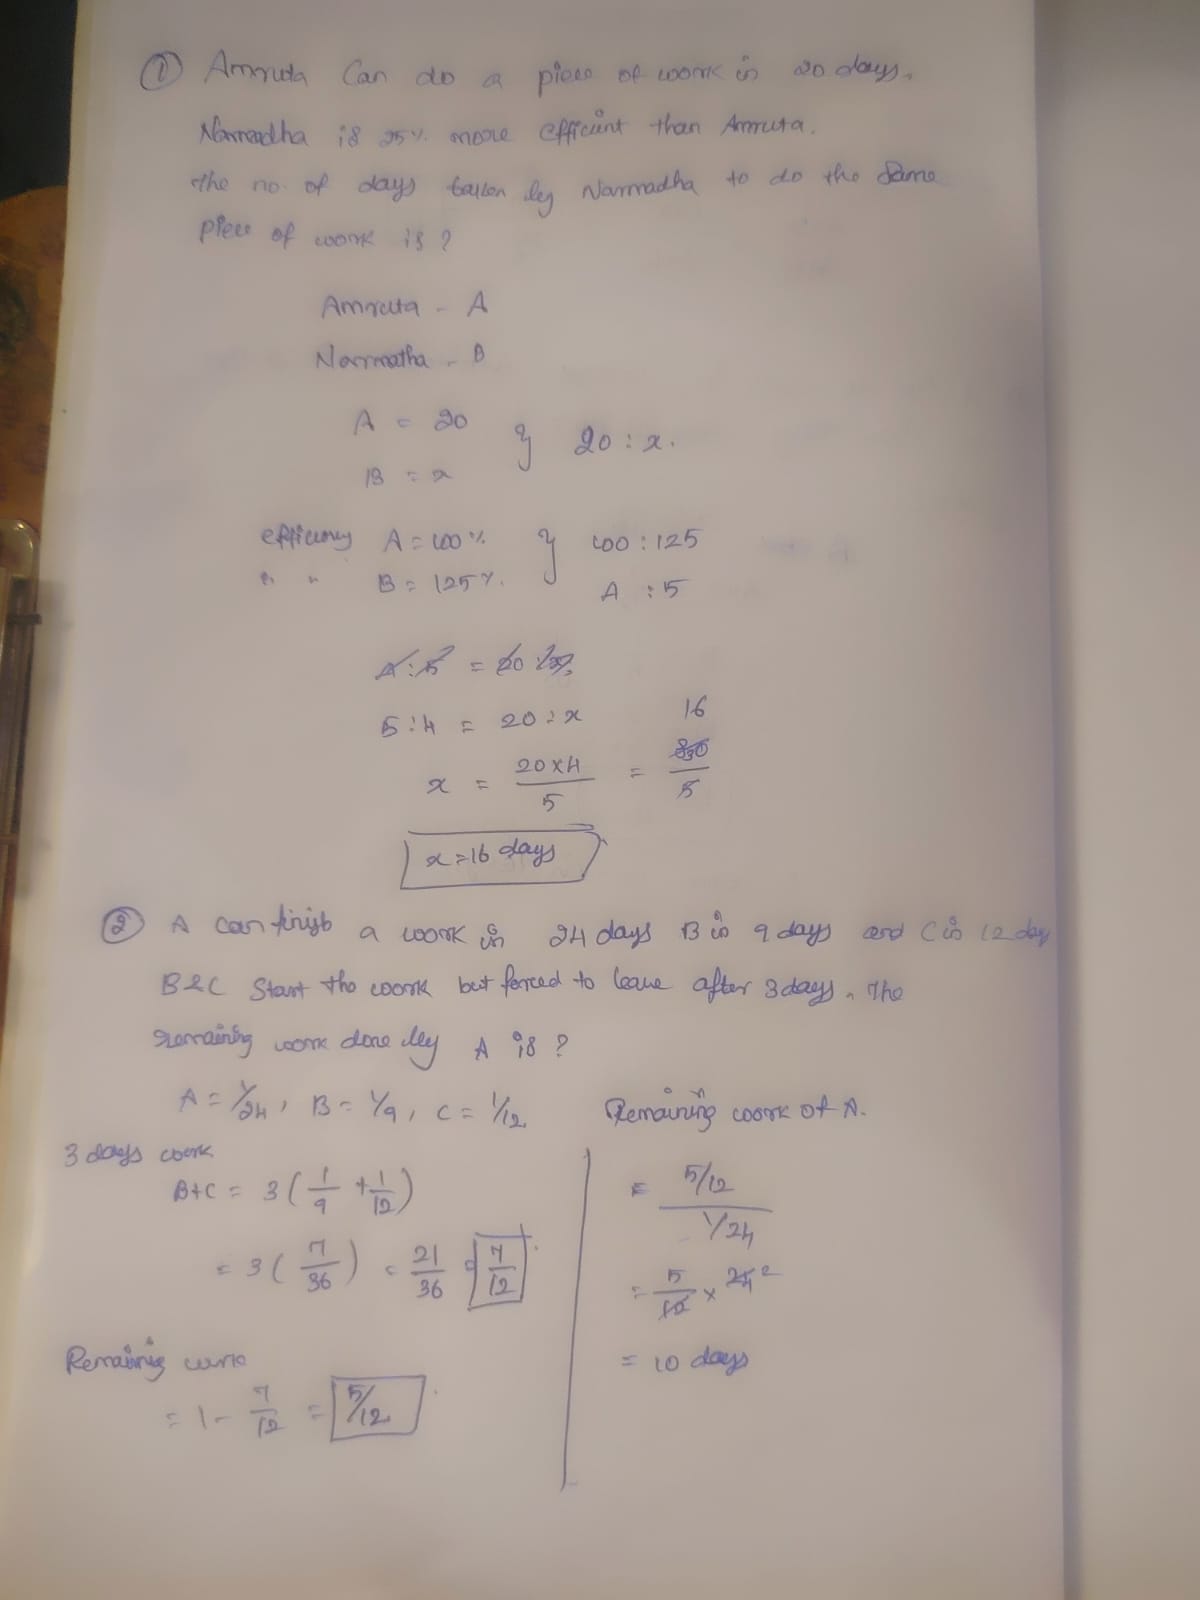 ① Amruta Can do a piece of work in 20 days.
Narmadha is 25% more efficient than Amruta.
the no. of days taken by Narmadha to do the same
piece of work is?
Amruta - A
Narmatha - B
A = 20
B = x
} 20 : x.
efficiency A = 100%
" " B = 125%.
} 100 : 125
4 : 5
4 : 5 = 20 : x
5 : 4 = 20 : x
x = 20 x 4 / 5 = 80 / 5 16
x = 16 days
② A can finish a work in 24 days B in 9 days and C in 12 day
B & C Start the work but forced to leave after 3 days. The
remaining work done by A is?
A = 1/24, B = 1/9, C = 1/12
3 days work
B+C = 3 ( 1/9 + 1/12 )
= 3 ( 7/36 ) = 21/36 = 7/12
Remaining work
= 1 - 7/12 = 5/12
Remaining work of A.
= 5/12 / 1/24
= 5/12 x 24 2
= 10 days